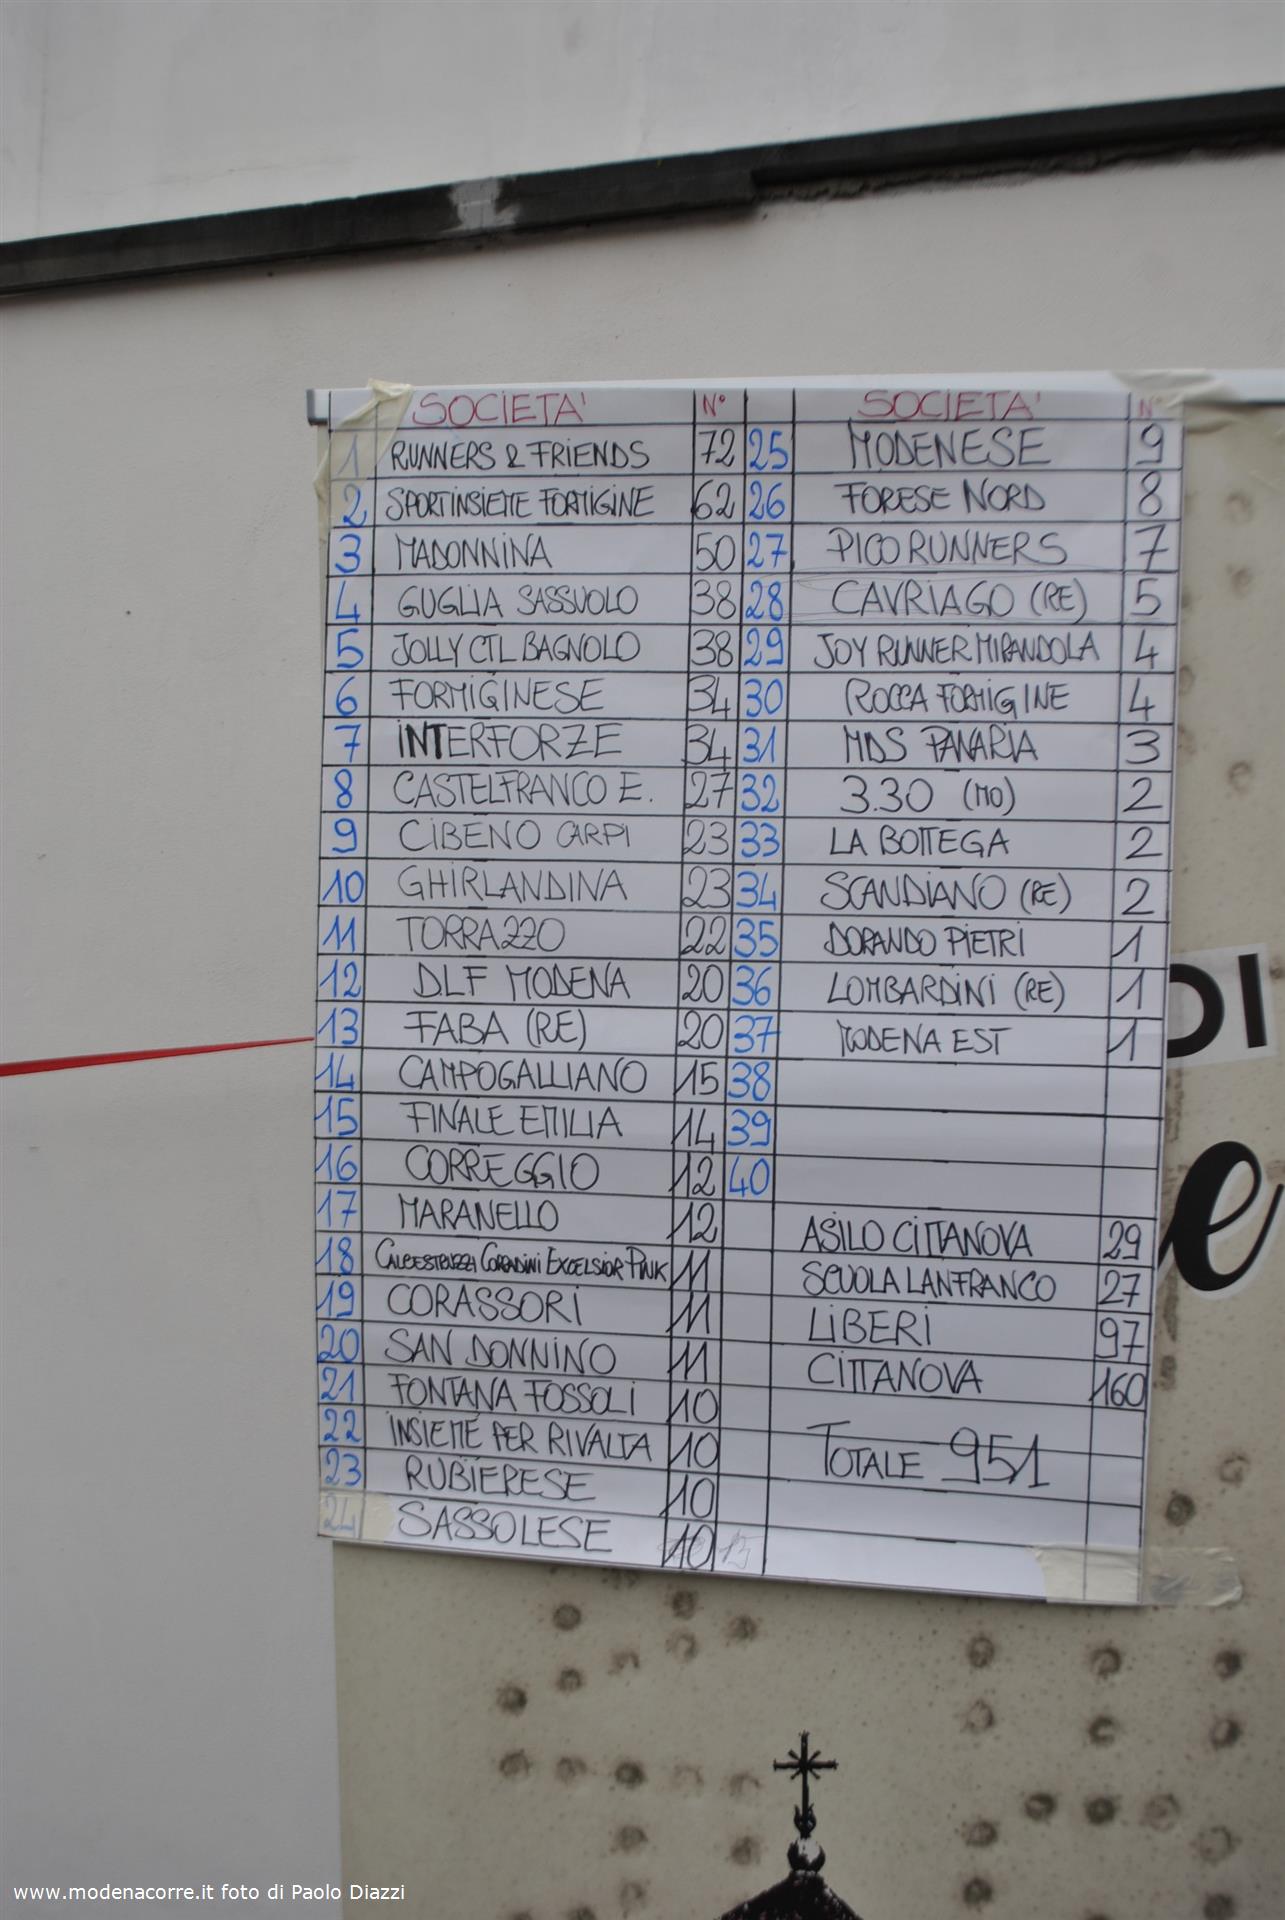 SOCIETA' N°
1 RUNNERS & FRIENDS 72
2 SPORTINSIEME FORMIGINE 62
3 MADONNINA 50
4 GUGLIA SASSUOLO 38
5 JOLLY CTL BAGNOLO 38
6 FORMIGINESE 34
7 INTERFORZE 34
8 CASTELFRANCO E. 27
9 CIBENO CARPI 23
10 GHIRLANDINA 23
11 TORRAZZO 22
12 DLF MODENA 20
13 FABA (RE) 20
14 CAMPOGALLIANO 15
15 FINALE EMILIA 14
16 CORREGGIO 12
17 MARANELLO 12
18 CALCESTRUZZI CORRADINI EXCELSIOR PINK 11
19 CORASSORI 11
20 SAN DONNINO 11
21 FONTANA FOSSOLI 10
22 INSIEME PER RIVALTA 10
23 RUBIERESE 10
24 SASSOLESE 10 13
SOCIETA' N°
25 MODENESE 9
26 FORESE NORD 8
27 PICO RUNNERS 7
28 CAVRIAGO (RE) 5
29 JOY RUNNER MIRANDOLA 4
30 ROCCA FORMIGINE 4
31 MDS PANARIA 3
32 3.30 (MO) 2
33 LA BOTTEGA 2
34 SCANDIANO (RE) 2
35 DORANDO PIETRI 1
36 LOMBARDINI (RE) 1
37 MODENA EST 1
38
39
40
ASILO CITTANOVA 29
SCUOLA LANFRANCO 27
LIBERI 97
CITTANOVA 160
TOTALE 951
DI
e
www.modenacorre.it foto di Paolo Diazzi